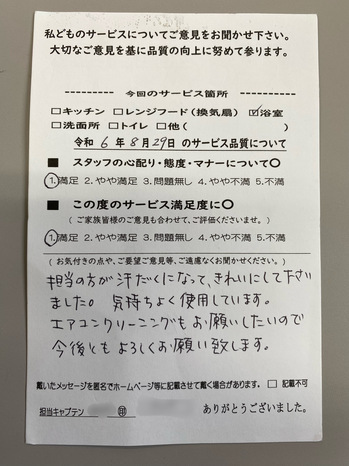 私どものサービスについてご意見をお聞かせ下さい。
大切なご意見を基に品質の向上に努めて参ります。
今回のサービス箇所
□キッチン □レンジフード(換気扇) ☑浴室
□洗面所 □トイレ □他( )
令和 6 年 8 月 29 日 のサービス品質について
■ スタッフの心配り・態度・マナーについて○
1.満足 2.やや満足 3.問題無し 4.やや不満 5.不満
■ この度のサービス満足度に○
(ご家族皆様のご意見も合わせて、ご評価くださいませ。)
1.満足 2.やや満足 3.問題無し 4.やや不満 5.不満
(お気付きの点や、ご要望ご意見等、ご遠慮なくお聞かせください。)
担当の方が汗だくになって、きれいにして下さい
ました。気持ちよく使用しています。
エアコンクリーニングもお願いしたいので
今後ともよろしくお願い致します。
戴いたメッセージを匿名でホームページ等に記載させて戴く場合があります。 □ 記載不可
担当キャプテン ㊞ ありがとうございました。